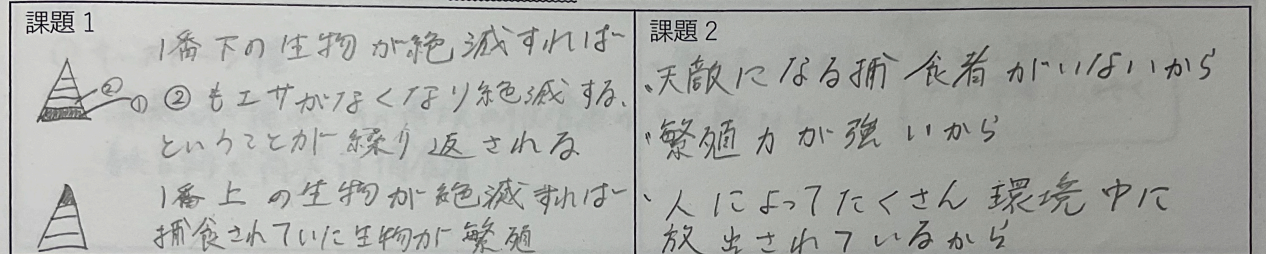 課題1
1番下の生物が絶滅すれば
② ① ②もエサがなくなり絶滅する、
ということが繰り返される
1番上の生物が絶滅すれば
捕食されていた生物が繁殖
課題2
・天敵になる捕食者がいないから
・繁殖力が強いから
・人によってたくさん環境中に
放出されているから